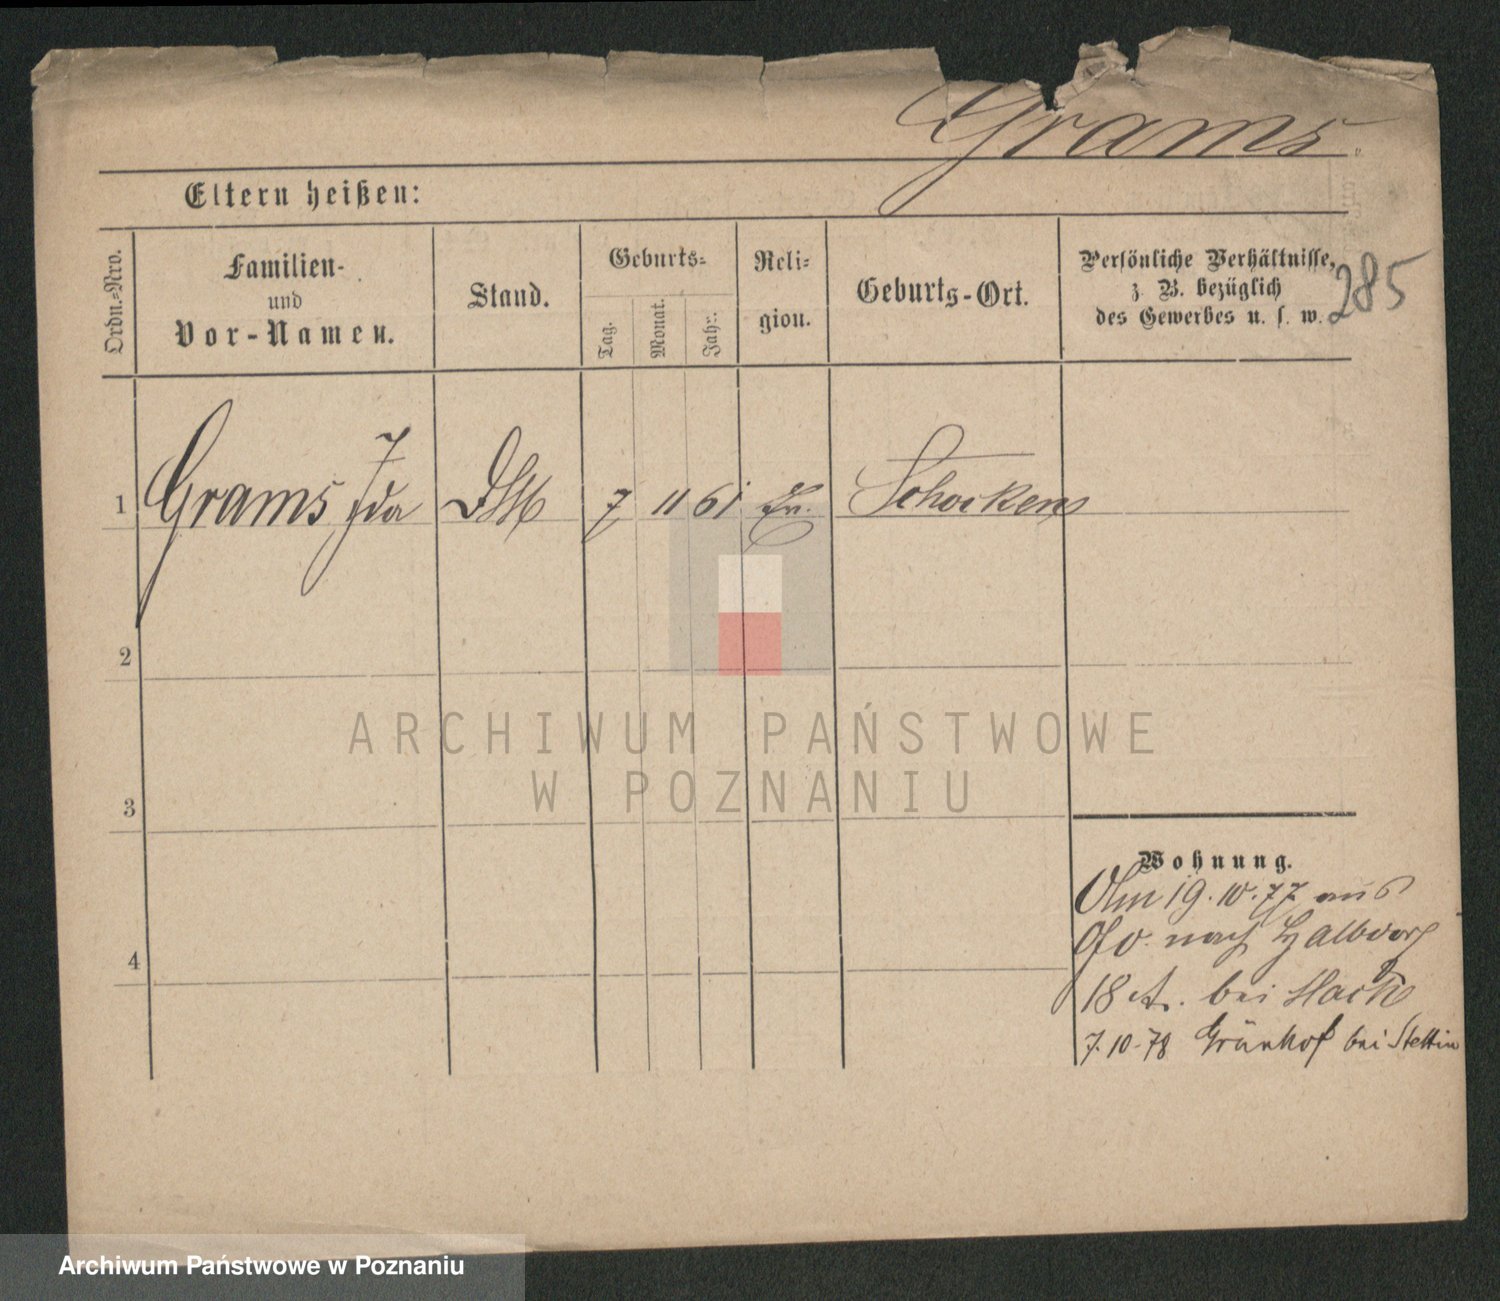 Grams.
Eltern heißen:
Ordn.=Nro.
Familien-
und
Vor-Namen.
Stand.
Geburts=
Tag.
Monat.
Jahr.
Reli=
gion.
Geburts-Ort.
Persönliche Verhältnisse,
z. B. bezüglich
des Gewerbes u. s. w.
285
1 Grams Ida DM 7 11 61 Ev. Schocken
2
3
4
Wohnung.
19. 10. 77 aus
nach Halbdorf
18 A. bei Hack
7.10.78 Grünhof bei Stettin
ARCHIWUM PAŃSTWOWE
W POZNANIU
Archiwum Państwowe w Poznaniu